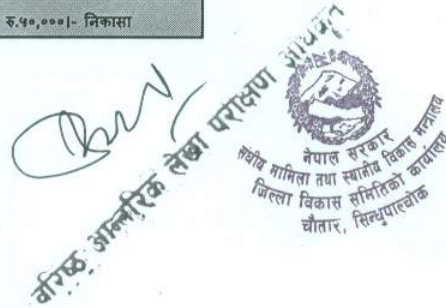 रु.५०,०००|- निकासा
वरिष्ठ आन्तरिक लेखा परीक्षण अधिकृत
नेपाल सरकार
संघीय मामिला तथा स्थानीय विकास मन्त्रालय
जिल्ला विकास समितिको कार्यालय
चौतारा, सिन्धुपाल्चोक